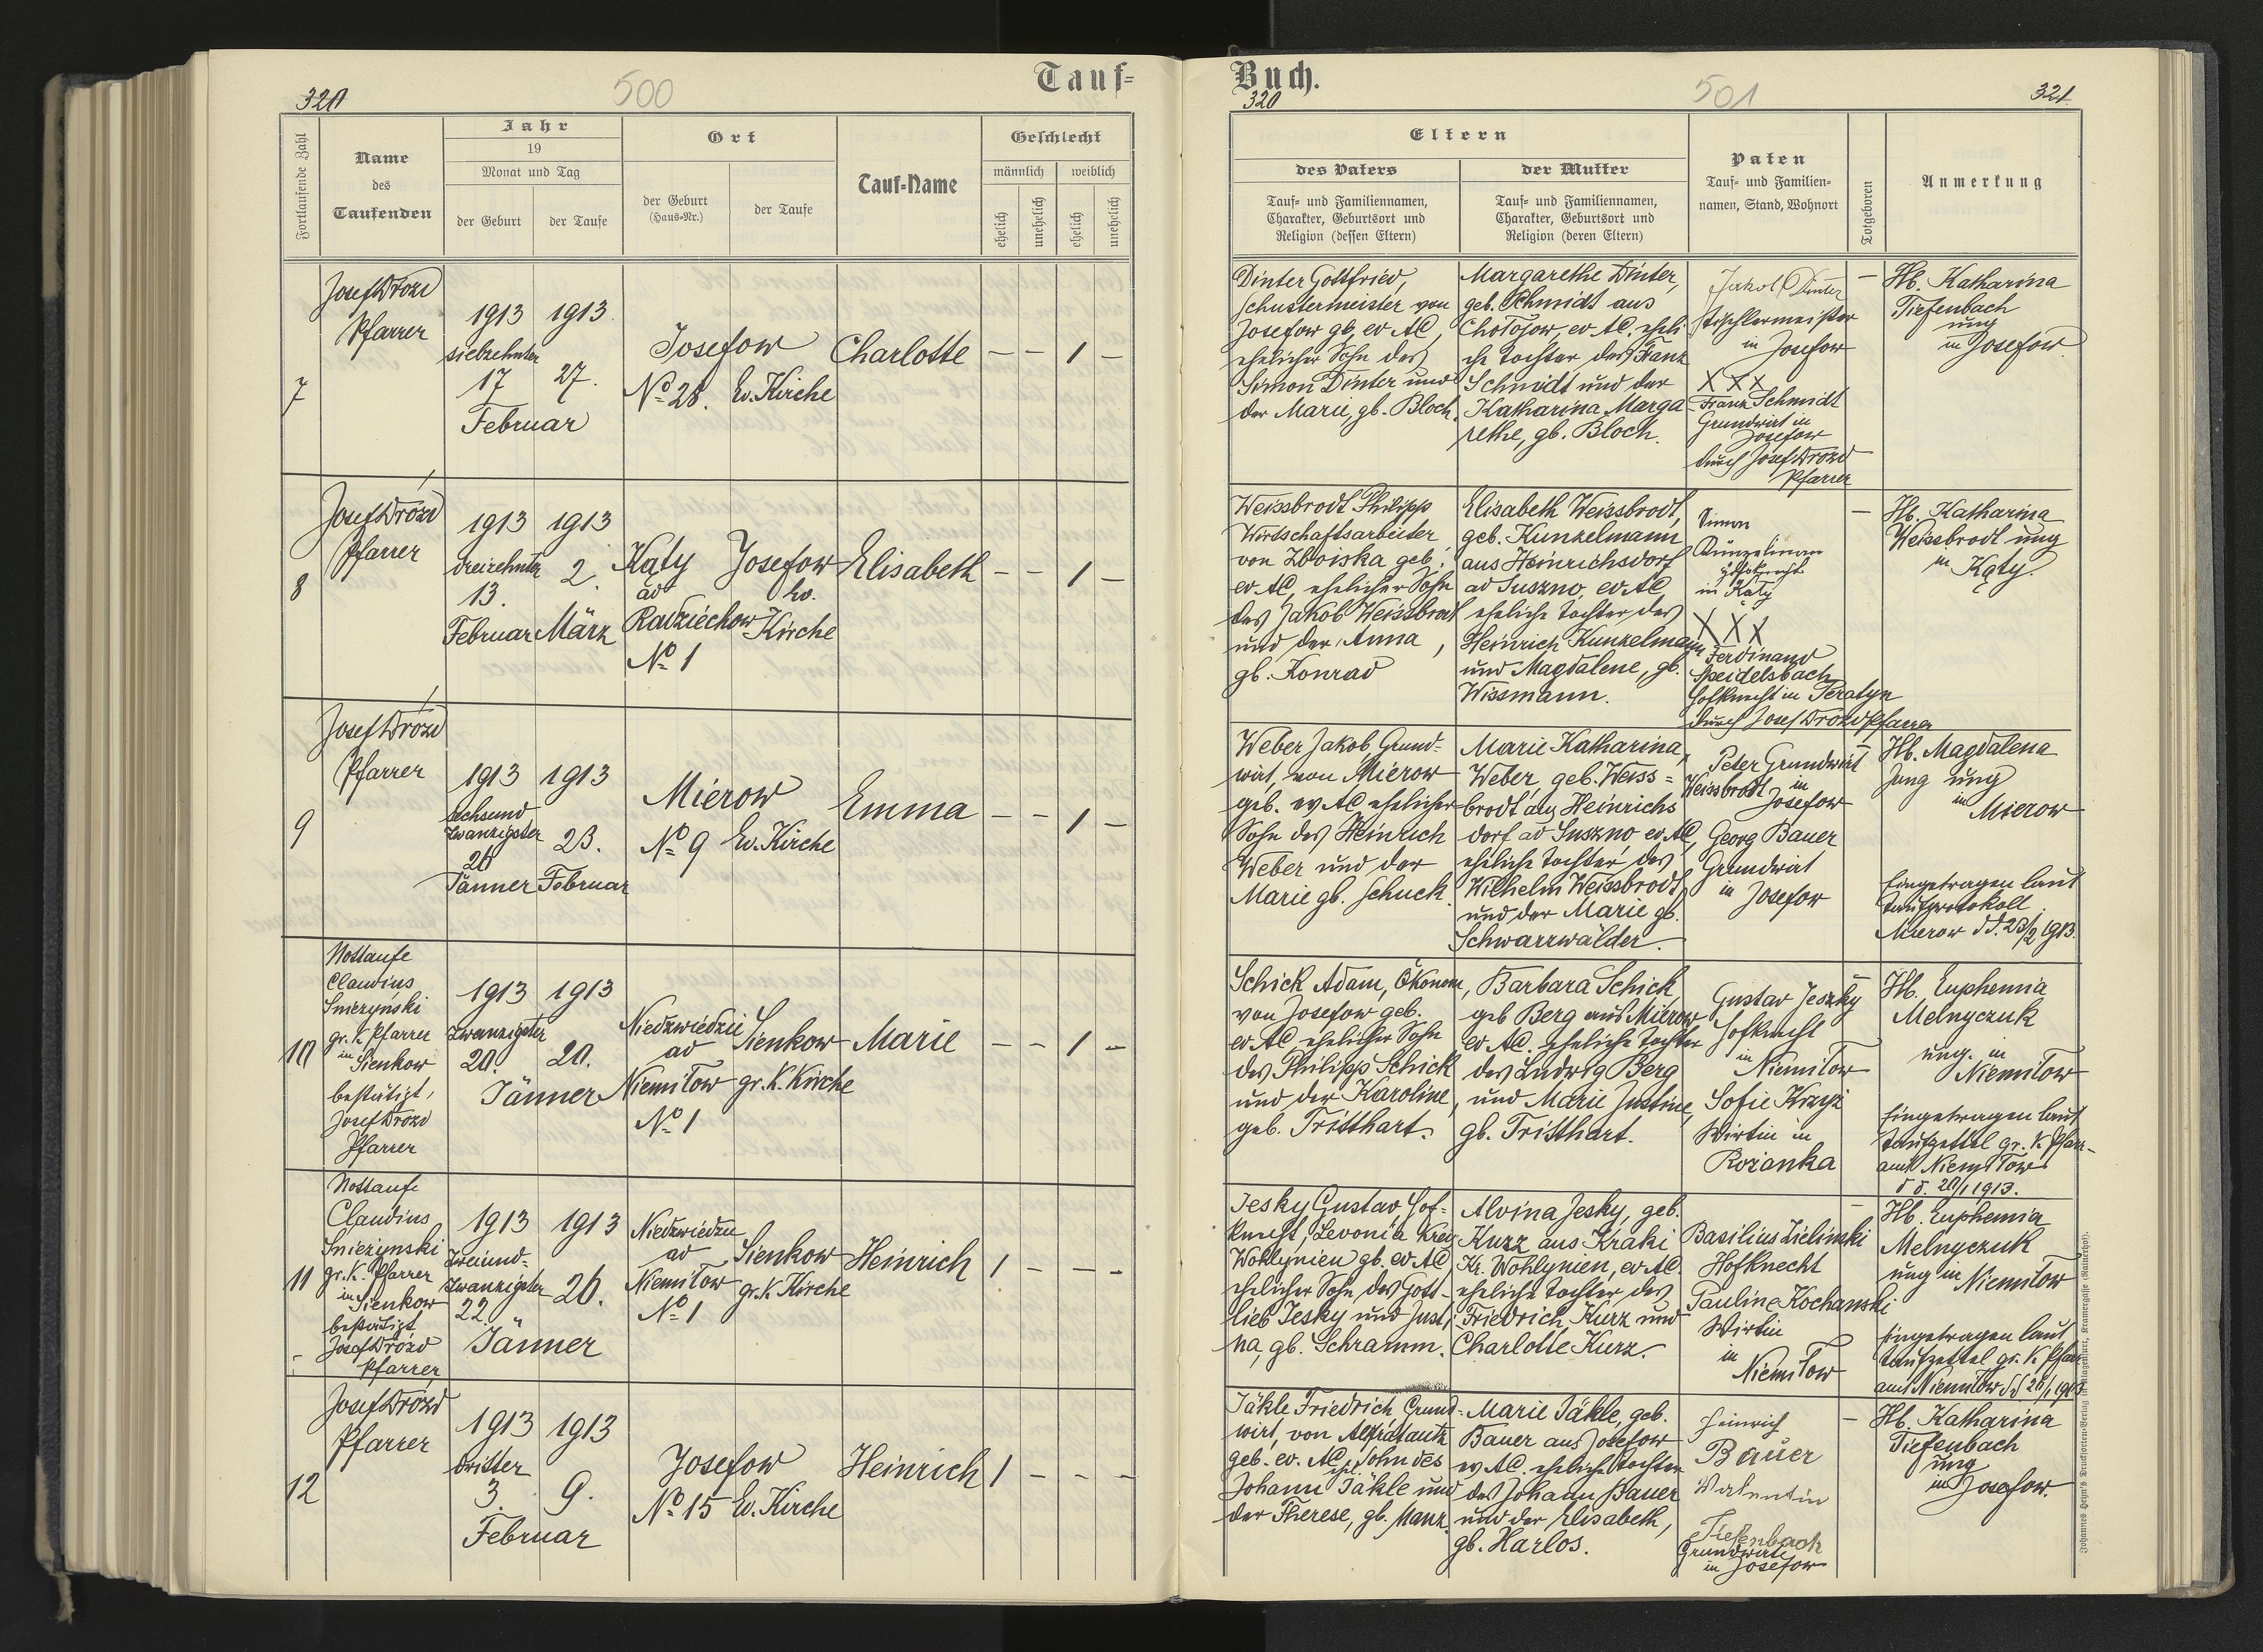 Tauf=
Buch.
320
500
320
501
321
Fortlaufende Zahl
Name
des
Taufenden
Jahr
19
Monat und Tag
der Geburt
der Taufe
Ort
der Geburt
(Haus=Nr.)
der Taufe
Tauf=Name
Geschlecht
männlich
weiblich
ehelich
unehelich
ehelich
unehelich
Eltern
des Vaters
Tauf= und Familiennamen,
Charakter, Geburtsort und
Religion (dessen Eltern)
der Mutter
Tauf= und Familiennamen,
Charakter, Geburtsort und
Religion (deren Eltern)
Paten
Tauf= und Familien=
namen, Stand, Wohnort
Totgeboren
Anmerkung
7
Josef Drozd
Pfarrer
1913 1913
siebzehnter
17 27.
Februar
Josefow
No 28. Ev. Kirche
Charlotte
— — 1 —
Dinter Gottfried,
Schustermeister von
Josefow gb, ev AC,
ehelicher Sohn des
Simon Dinter und
der Marie, gb. Bloch.
Margarethe Dinter,
geb. Schmidt aus
Chołojow, ev. AC. eheli
che Tochter des Franz
Schmidt und der
Katharina Marga
rethe, gb. Bloch.
Jakob Dinter
Tischlermeister
in Josefow
X X X
Franz Schmidt
Grundwirt in
Josefow
durch Josef Drozd
Pfarrer
—
Hb. Katharina
Tiefenbach
ung
in Josefow
8
Josef Drózd
Pfarrer
1913 1913
dreizehnter
13. 2.
Februar März
Kąty
ad
Radziechow
No 1
Josefow
Ev.
Kirche
Elisabeth
— — 1 —
Weissbrodt Philipp
Wirtschaftsarbeiter
von Zboiska geb,
ev AC, ehelicher Sohn
des Jakob Weissbrodt
und der Anna,
gb. Konrad
Elisabeth Weissbrodt,
geb. Kunzelmann
aus Heinrichsdorf
ad Suszno, ev. AC
eheliche Tochter des
Heinrich Kunzelmann
und Magdalene, gb.
Wissmann.
Simon
Künzelman
in Kąty
X X X
Ferdinand
Speidelsbach
Hofknecht in Peratyn
durch Josef Drozd Pfarrer
—
Hb. Katharina
Weissbrodt ung
in Kąty.
9
Josef Drózd
Pfarrer
1913 1913
sechsund
zwanzigster
26 23.
Jänner Februar
Mierow
No 9 Ev. Kirche
Emma
— — 1 —
Weber Jakob, Grund=
wirt, von Mierow
geb. ev AC ehelicher
Sohn des Heinrich
Weber und der
Marie gb. Schuck.
Marie Katharina
Weber, geb. Weiss=
brodt aus Heinrichs
dorf ad Suszno ev. AC,
eheliche Tochter des
Wilhelm Weissbrodt
und der Marie gb.
Schwarzwälder.
Peter Grundwirt
Weissbrodt in
Josefow
Georg Bauer
Grundwirt
in Josefow
—
Hb. Magdalena
Jung ung
in Mierow
Eingetragen laut
Taufprotokoll
Mierow dd. 23/2 1913.
10
Nottaufe
Claudius
Snieżyński
gr. k. Pfarrer
in Sienkow
bestätigt,
Josef Drozd
Pfarrer
1913 1913
Zwanzigster
20. 20.
Jänner
Niedzwiedzie
ad
Niemiłow
No 1
Sienkow
gr. K. Kirche
Marie
— — 1 —
Schick Adam, Ökonom,
von Josefow geb.
ev. AC, ehelicher Sohn
des Philipp Schick
und der Karoline,
geb. Tristhart.
Barbara Schick
geb Berg aus Mierow
ev. AC. eheliche Tochter
des Ludwig Berg
und Marie Justine,
gb. Tristhart.
Gustav Jeszky
Hofknecht
in Niemiłow
Sofie Krzyż
Wirtin in
Rożanka
—
Hb. Euphemia
Melnyczuk
ung. in
Niemiłow
Eingetragen laut
Taufzettel gr. K. Pfarr-
amt Niemiłow
d d. 20/1 1913.
11
Nottaufe
Claudius
Snieżynski
gr. K. Pfarrer
in Sienkow
bestätigt
Josef Drózd
Pfarrer
1913 1913
Zweiund=
zwanzigster
22. 26.
Jänner
Niedzwiedzu
ad
Niemiłow
No 1
Sienkow
gr. K Kirche
Heinrich
1 — — —
Jesky Gustav, Hof=
knecht, Levonia Kreis
Wohlynien gb. ev. AC
ehelicher Sohn des Gott-
lieb Jesky und Justi
na, gb. Schramm.
Alvina Jesky, geb.
Kurz aus Kraki
Kr. Wohlynien, ev. AC
eheliche Tochter des
Friedrich Kurz und
Charlotte Kurz.
Basilius Zielinski
Hofknecht
Pauline Kochanski
Wirtin
in
Niemiłow
—
Hb. Euphemia
Melnyczuk
ung in Niemiłow
Eingetragen laut
Taufzettel gr. K. Pfarr
amt Niemiłow dd 26/1 1913
12
Josef Drózd
Pfarrer
1913 1913
dritter
3. 9.
Februar
Josefow
No 15 Ev. Kirche
Heinrich
1 — — —
Jäkle Friedrich, Grund=
wirt, von Alfratautz
geb. ev. AC, ehel. Sohn des
Johann Jäkle und
der Therese, gb. Manz.
Marie Jäkle, geb.
Bauer aus Josefow
ev AC. eheliche Tochter
des Johann Bauer
und der Elisabeth,
gb. Harlos.
Heinrich
Bauer
Valentin
Tiefenbach
Grundwirte
in Josefow
—
Hb. Katharina
Tiefenbach
ung
in Josefow.
Johannes Heyn's Drucksorten=Verlag in Klagenfurt, Kramergasse (Rainerhof).